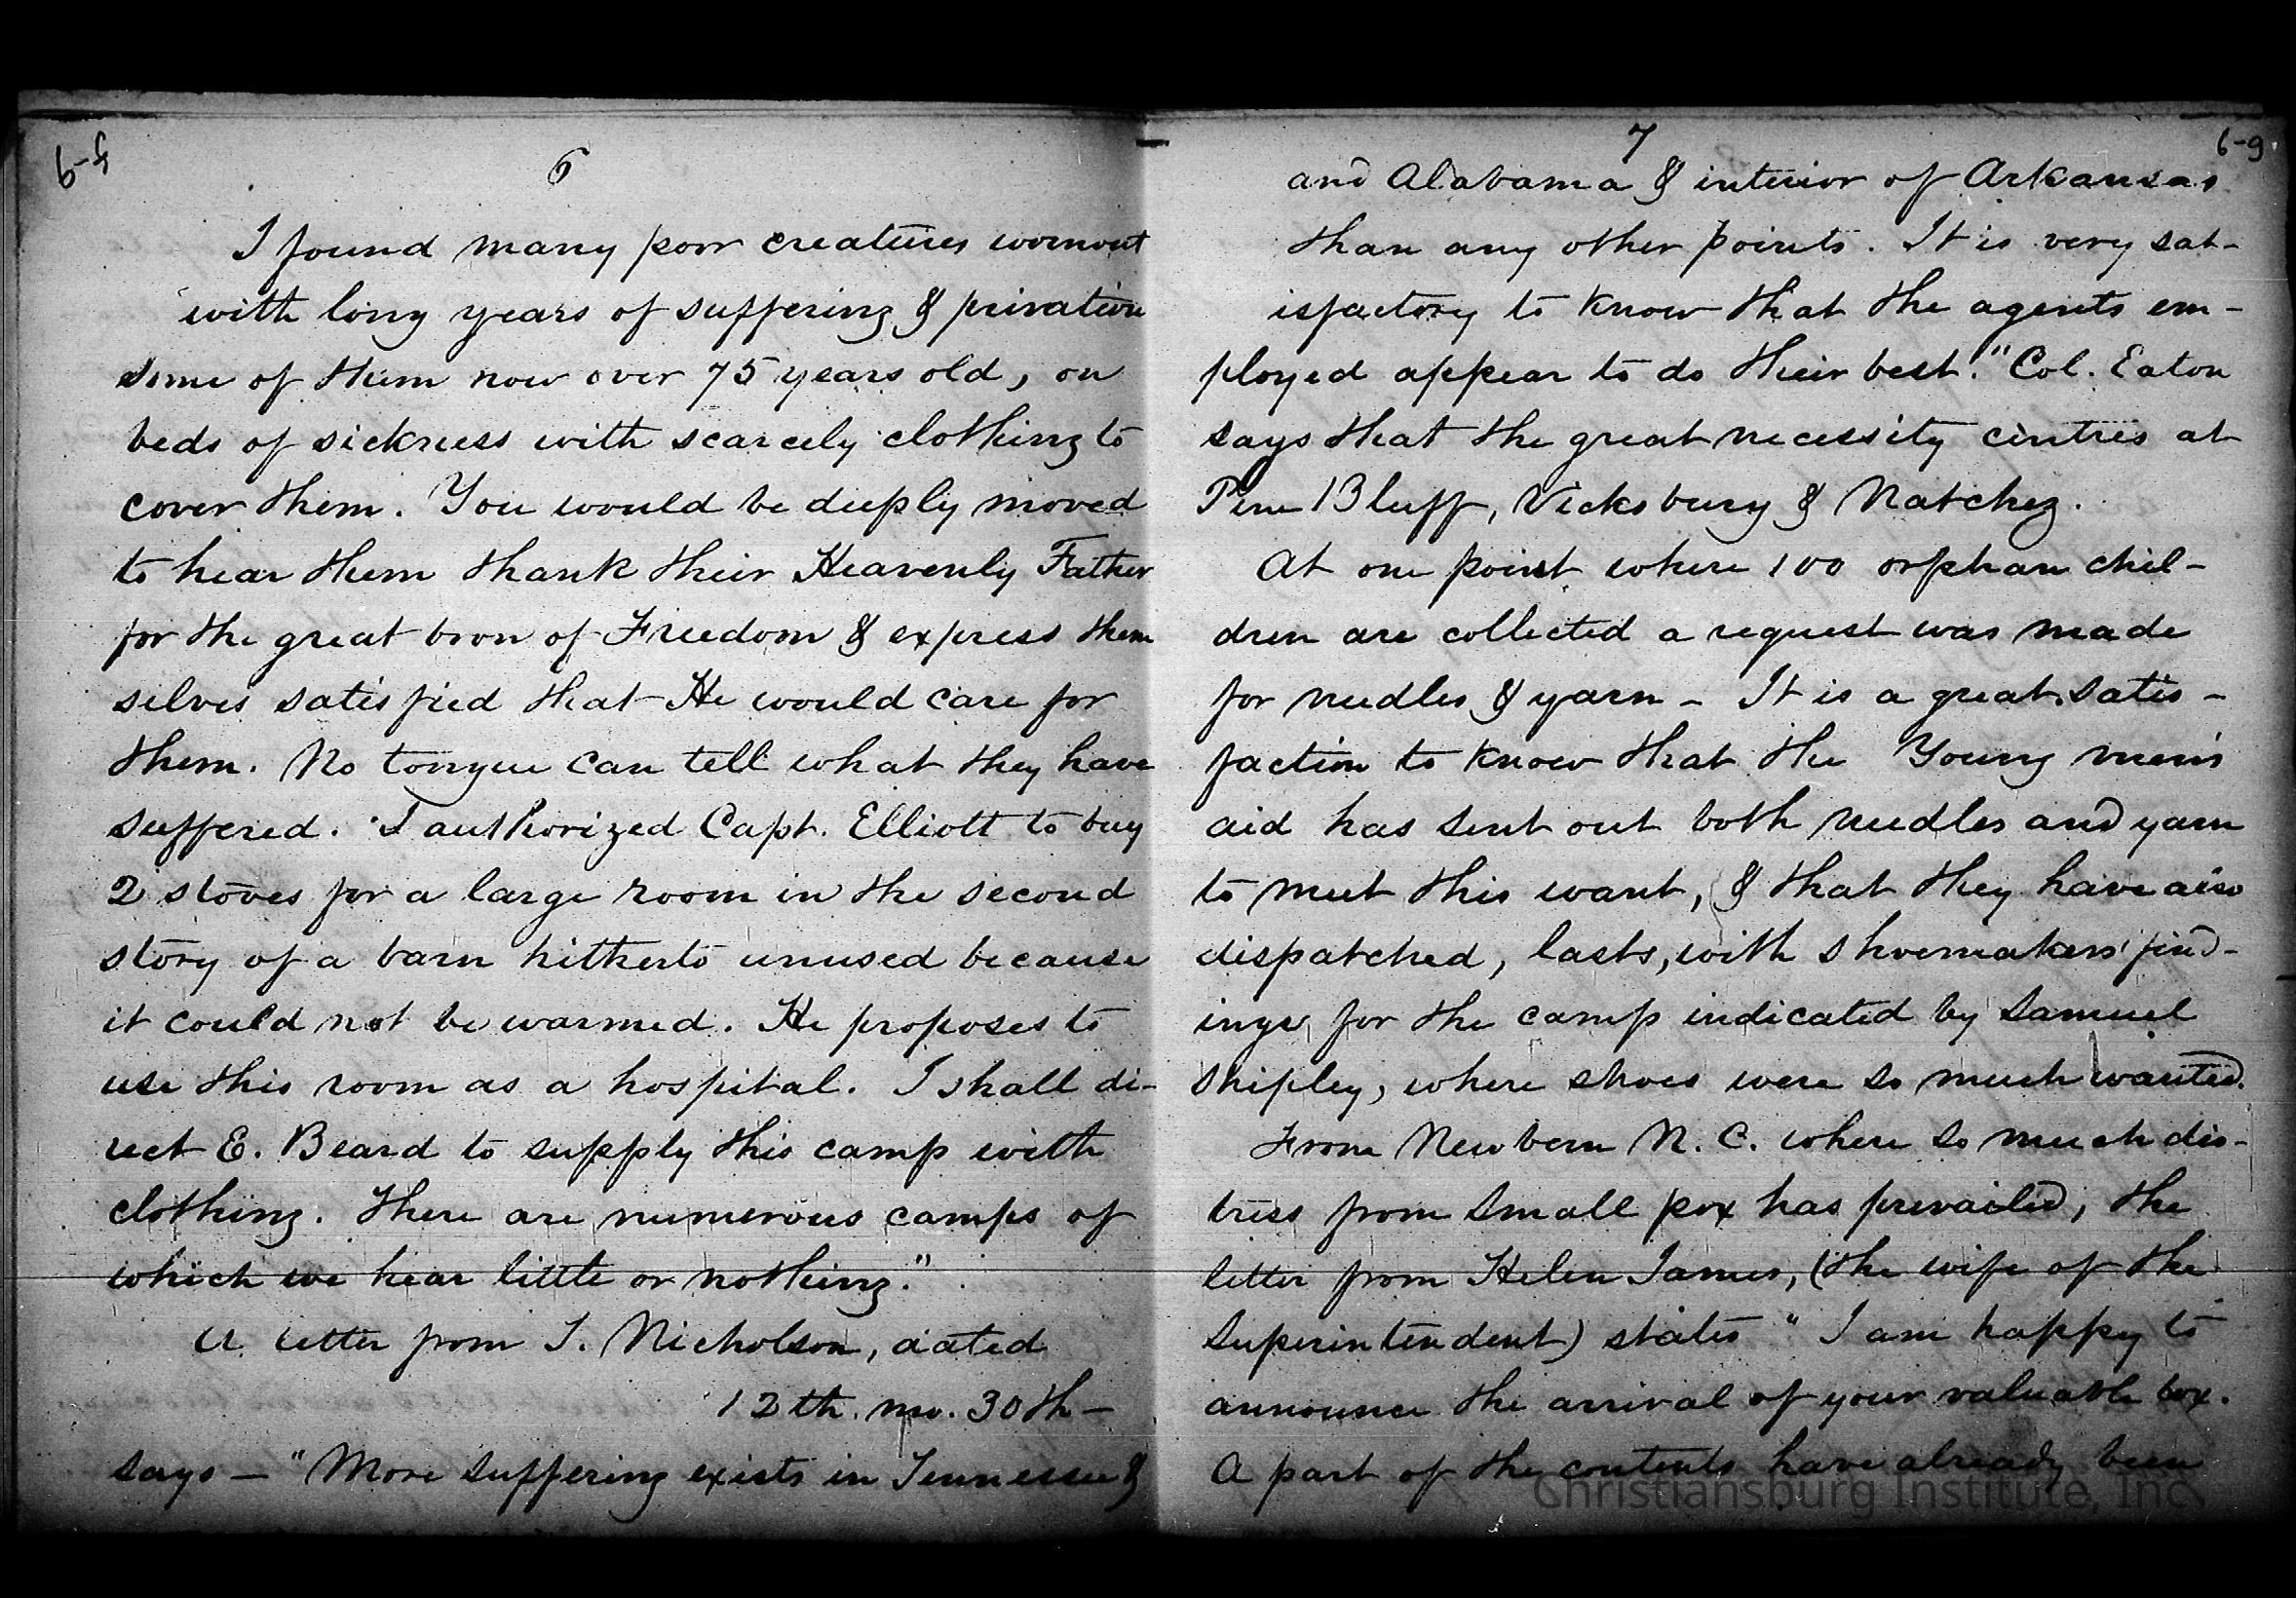 6-f
6
I found many poor creatures wornout
with long years of suffering & privation
some of them now over 75 years old, on
beds of sickness with scarcely clothing to
cover them. You would be deeply moved
to hear them thank their Heavenly Father
for the great boon of Freedom & express them
selves satisfied that He would care for
them. No tongue can tell what they have
suffered. I authorized Capt. Elliott to buy
2 stoves for a large room in the second
story of a barn hitherto unused because
it could not be warmed. He proposes to
use this room as a hospital. I shall di-
rect E. Beard to supply this camp with
clothing. There are numerous camps of
which we hear little or nothing."
A letter from T. Nicholson, dated
12th. mo. 30th —
says — "More suffering exists in Tennessee &
6-9
7
and Alabama & interior of Arkansas
than any other points. It is very sat-
isfactory to know that the agents em-
ployed appear to do their best." Col. Eaton
says that the great necessity centres at
Pine Bluff, Vicksburg & Natchez.
At one point where 100 orphan chil-
dren are collected a request was made
for needles & yarn - It is a great satis-
faction to know that the Young men's
aid has sent out both needles and yarn
to meet this want, & that they have also
dispatched, lasts, with shoemakers' find-
ings, for the camp indicated by Samuel
Shipley, where shoes were so much wanted.
From Newbern N. C. where so much dis-
tress from small pox has prevailed, the
letter from Helen James, (the wife of the
Superintendent) states "I am happy to
announce the arrival of your valuable box.
A part of the contents have already been
Christiansburg Institute, Inc